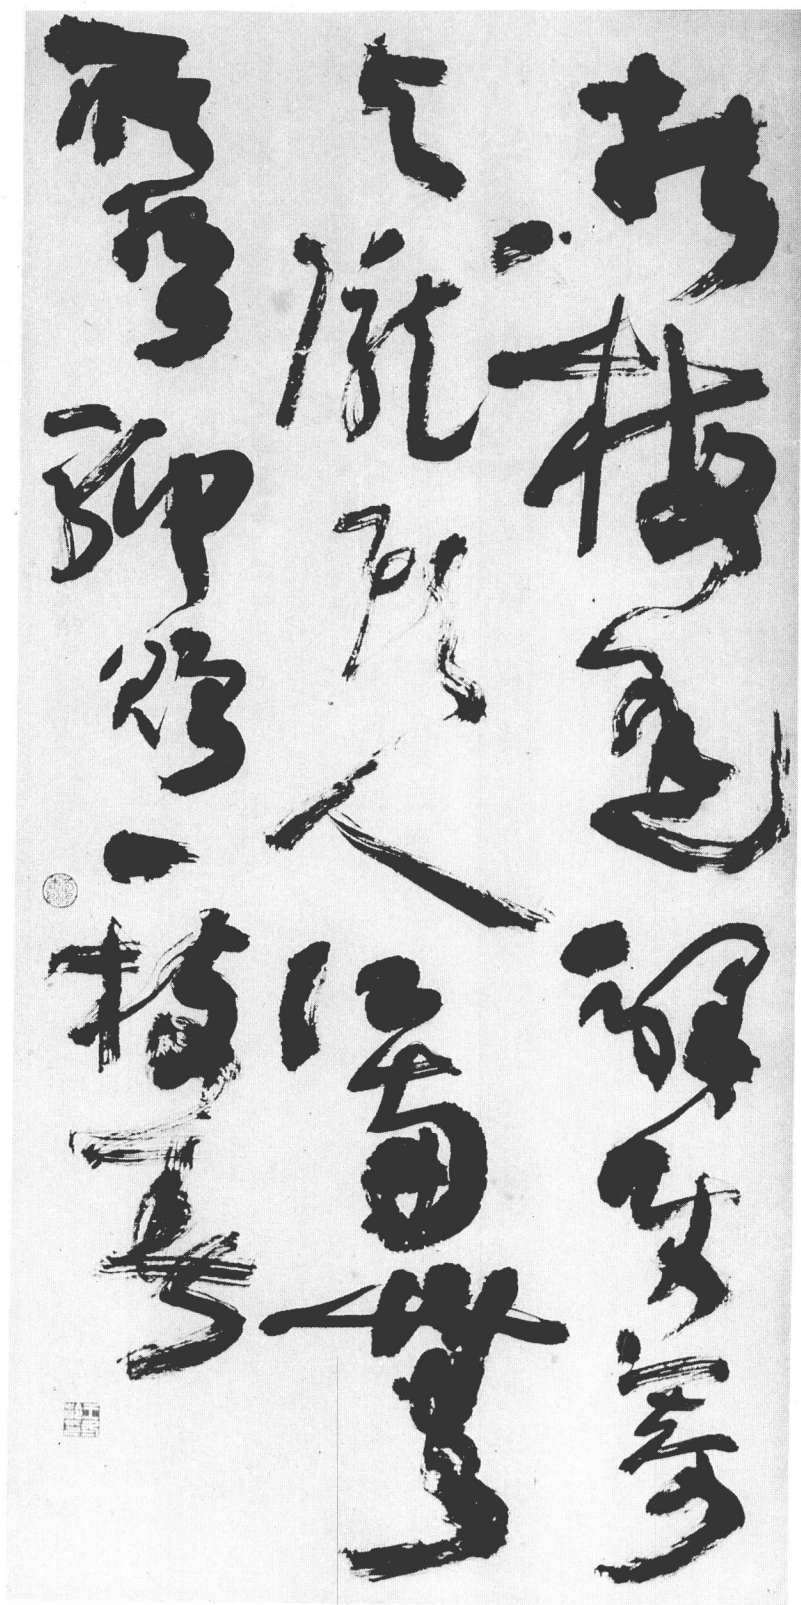 折梅逢驛使寄
与隴頭人江南無
所有聊贈一枝春